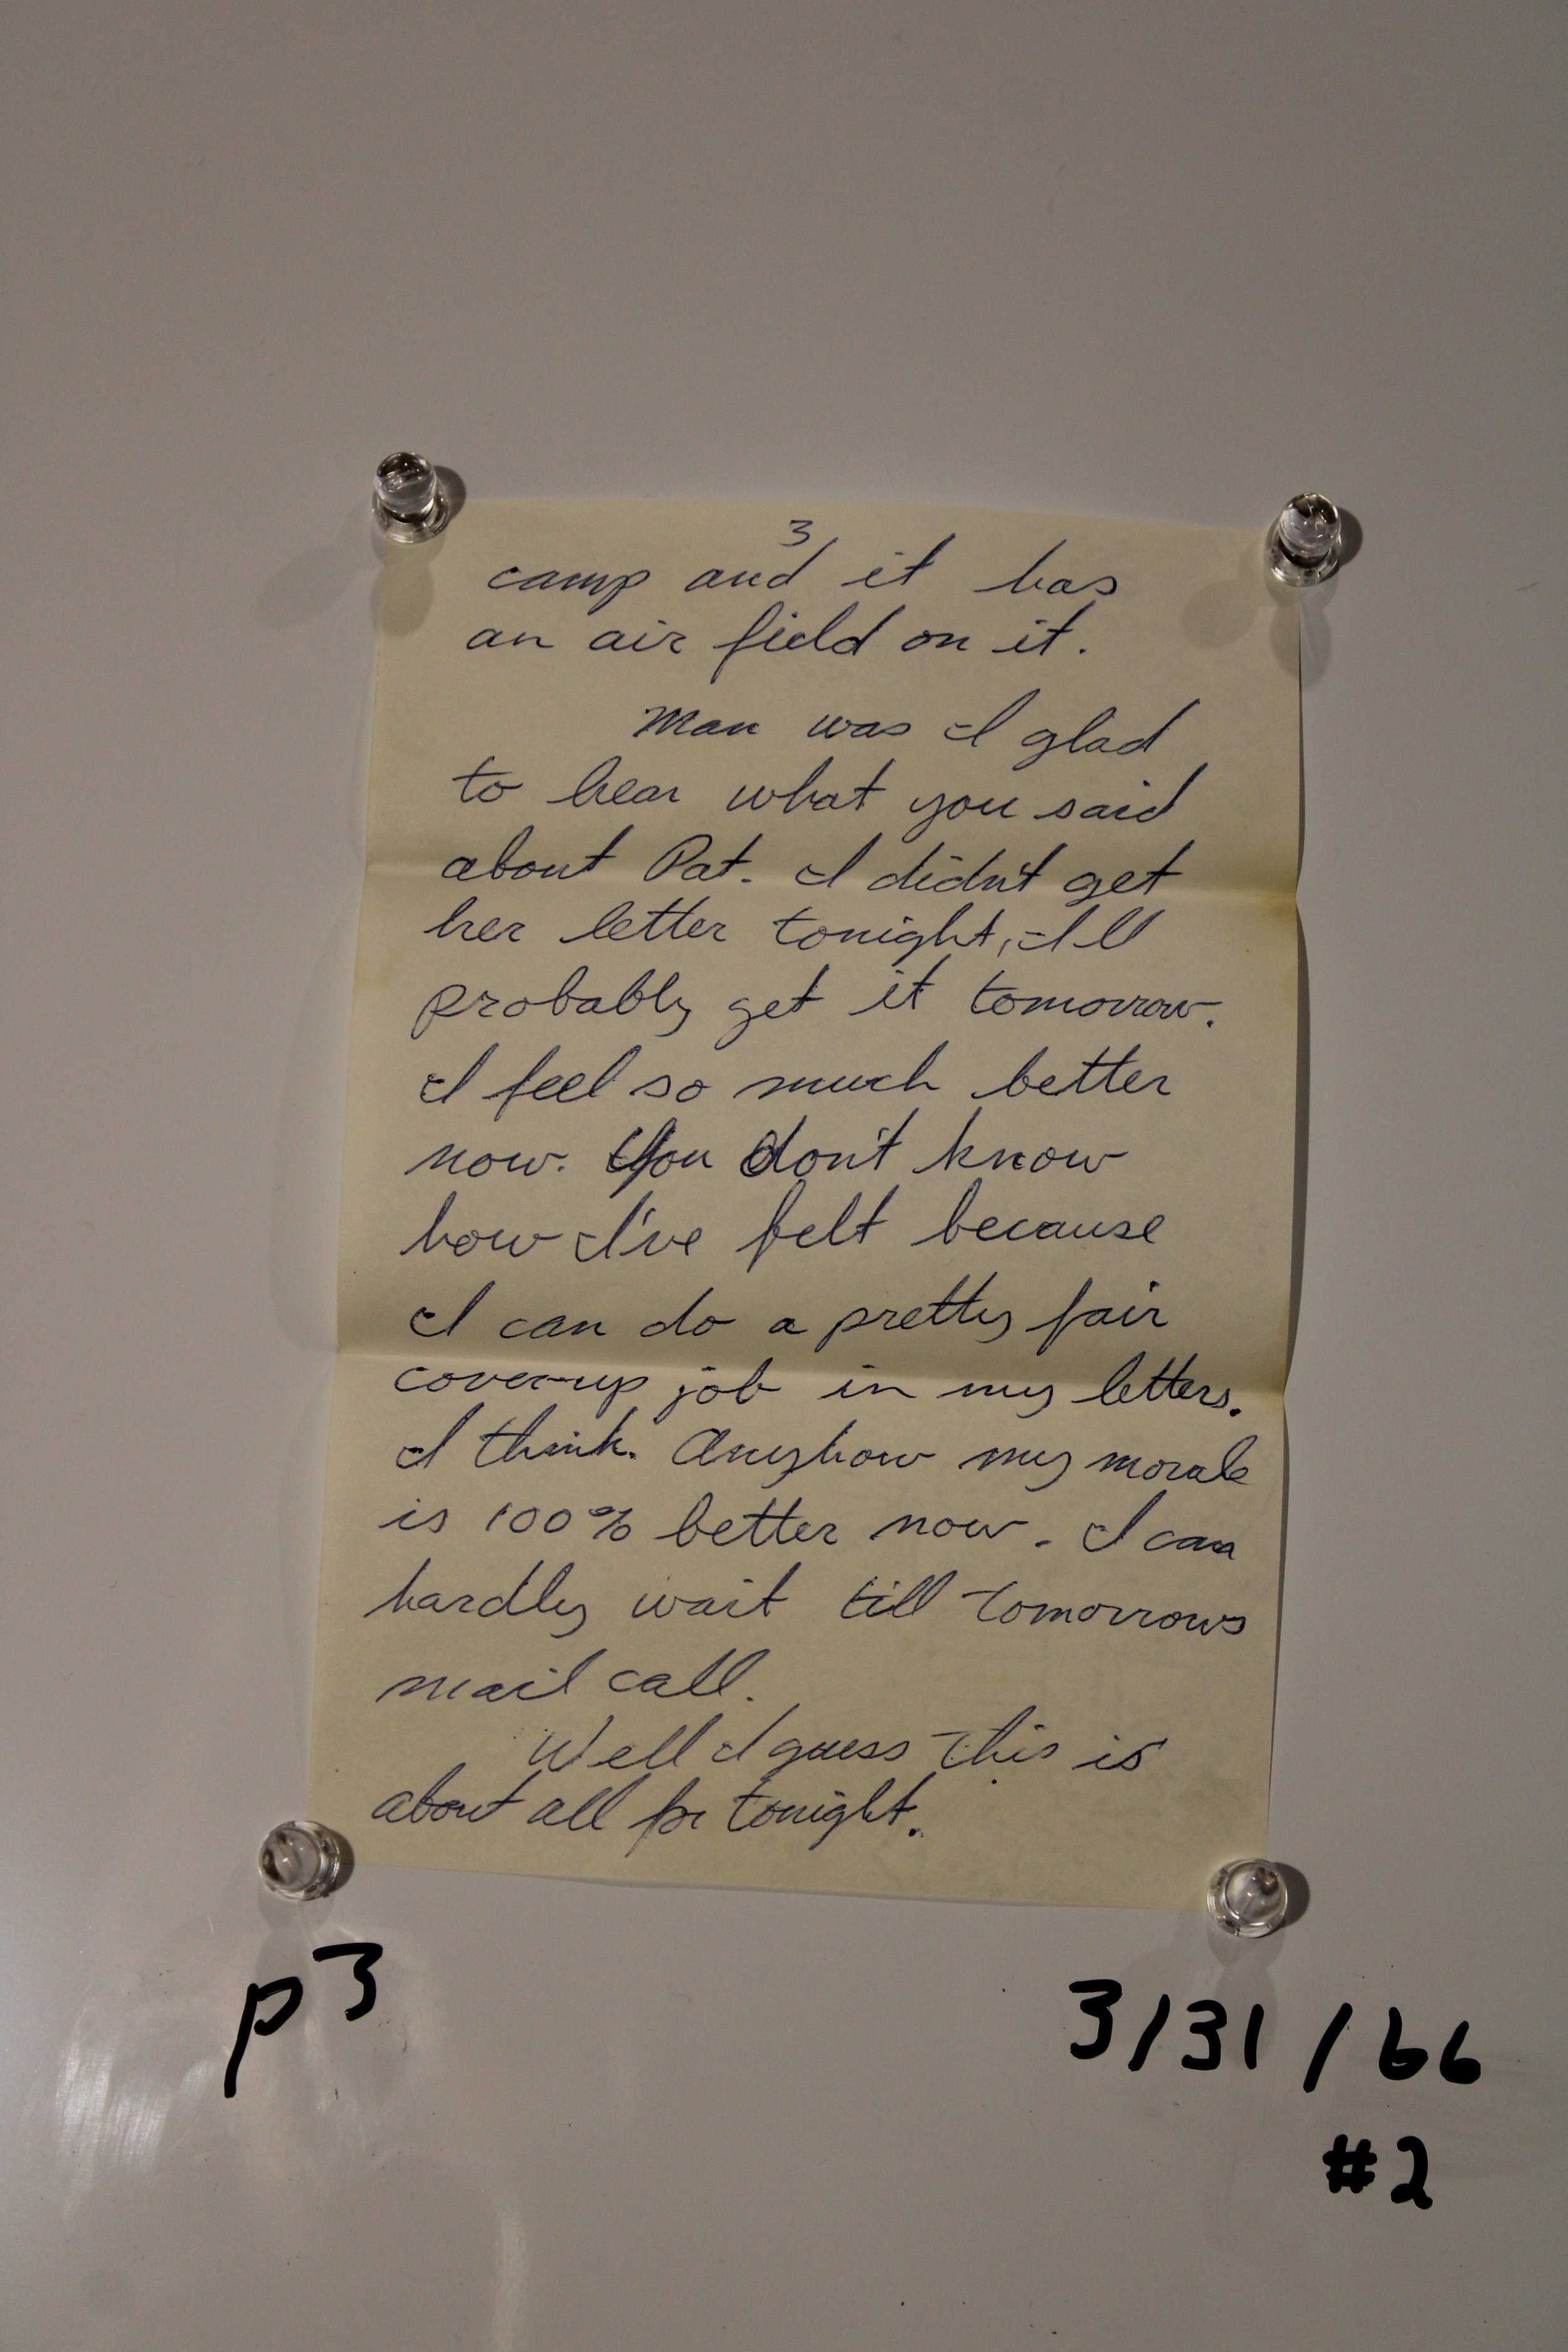 3
camp and it has
an air field on it.
Man was I glad
to hear what you said
about Pat. I didn't get
her letter tonight, I'll
probably get it tomorrow.
I feel so much better
now. You don't know
how I've felt because
I can do a pretty fair
cover-up job in my letters.
I think. Anyhow my morale
is 100% better now. I can
hardly wait till tomorrows
mail call.
Well I guess this is
about all for tonight.
p3
3/31/66
#2